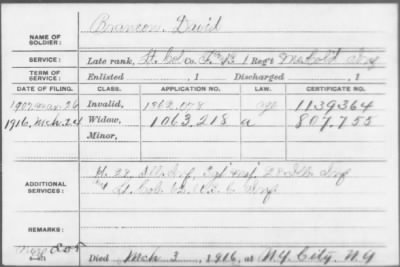 NAME OF SOLDIER: Branson, David
SERVICE: Late rank, Lt. Col. Co. F&S, 1 Reg't Mo Cold Inf
TERM OF SERVICE: Enlisted , 1 Discharged , 1
DATE OF FILING. CLASS. APPLICATION NO. LAW. CERTIFICATE NO.
1907 Mar. 26 Invalid, 1362,078 1139364
1916, Mch. 24 Widow, 1063.218 a 807.755
Minor,
ADDITIONAL SERVICES: 28 Ill Inf
Lt. Col. 62 U.S.C. Inf
REMARKS:
Died Mch 3, 1916, at N.Y. City, N.Y.